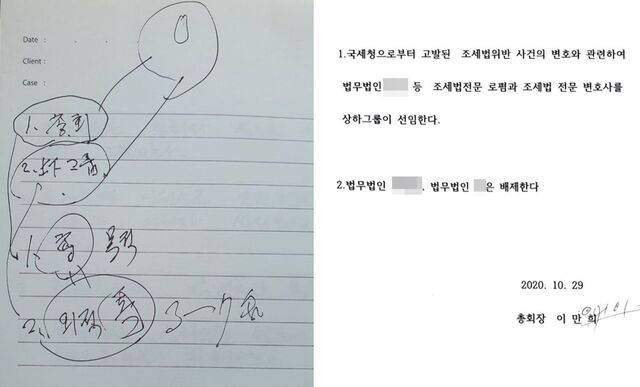 Date :
Client :
Case :
1. 총회
2. 상하그룹
1.
목적
2. 외적
1.국세청으로부터 고발된 조세법위반 사건의 변호와 관련하여
법무법인 등 조세법전문 로펌과 조세법 전문 변호사를
상하그룹이 선임한다.
2.법무법인 , 법무법인 은 배제한다
2020. 10. 29
총회장 이 만 희